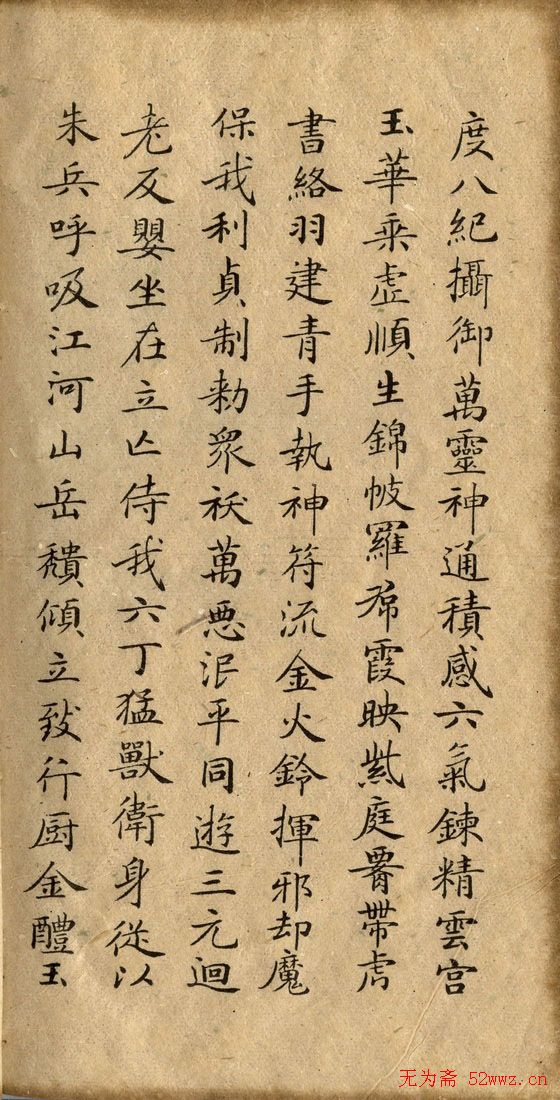 度八紀攝御萬靈神通積感六氣鍊精雲宮
玉華乘虛順生錦帔羅帬霞映紫庭腰帶虎
書絡羽建青手執神符流金火鈴揮邪却魔
保我利貞制勑衆祅萬惡泯平同遊三元迴
老反嬰坐在立亡侍我六丁猛獸衛身從以
朱兵呼吸江河山岳穨傾立致行厨金醴玉
无为斋 52wwz.cn